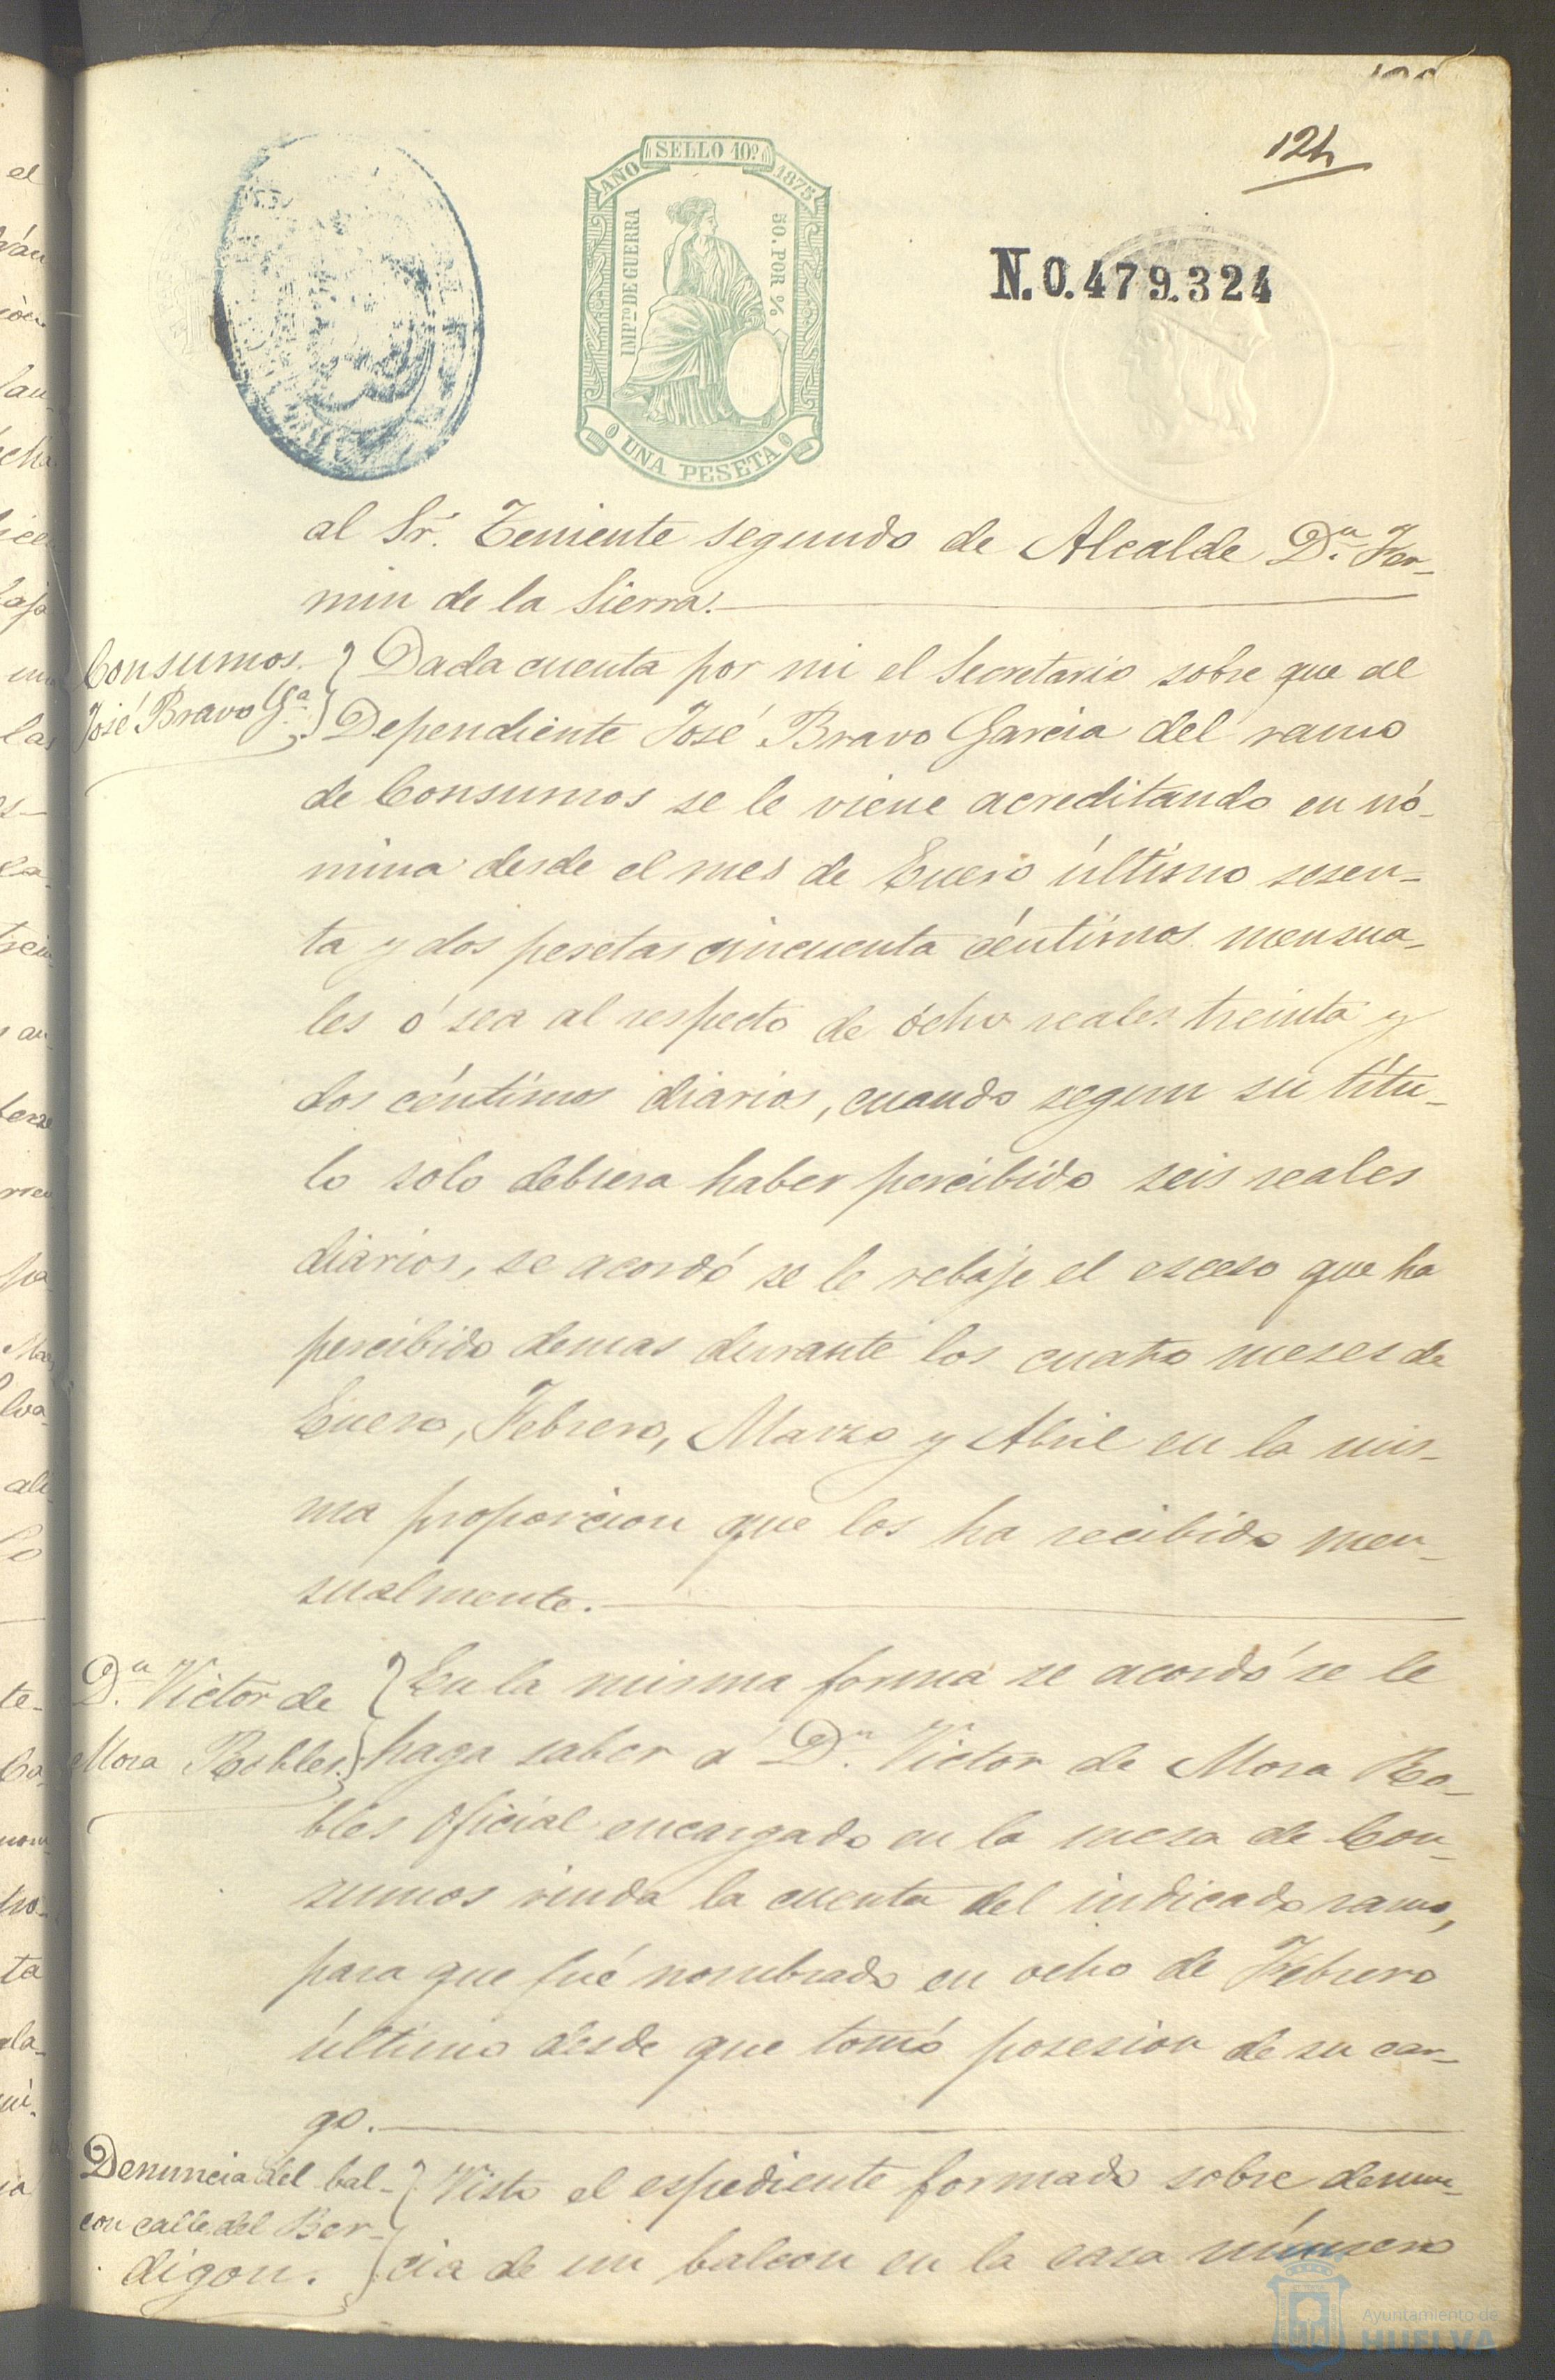 124
SELLO 10º
AÑO 1875
IMPTO DE GUERRA
50. POR %
0 UNA PESETA 0
N.0.479.324
al Sr. Teniente segundo de Alcalde Dn. Fer-
min de la Sierra.
Consumos.
José Bravo Ga.
Dada cuenta por mi el Secretario sobre que al
Dependiente José Bravo Garcia del ramo
de Consumos se le viene acreditando en nó-
mina desde el mes de Enero último sesen-
ta y dos pesetas cincuenta céntimos mensua-
les ó sea al respecto de ocho reales treinta y
dos céntimos diarios, cuando segun su títu-
lo sólo debiera haber percibido seis reales
diarios, se acordó se le rebaje el esceso que ha
percibido demas durante los cuatro meses de
Enero, Febrero, Marzo y Abril en la mis-
ma proporcion que los ha recibido men-
sualmente.
Dn. Victor de
Mora Robles.
En la misma forma se acordó se le
haga saber á Dn. Victor de Mora Ro-
bles Oficial encargado en la mesa de Con-
sumos rinda la cuenta del indicado ramo,
para que fué nombrado en ocho de Febrero
último desde que tomó posesion de su car-
go.
Denuncia del bal-
con calle del Ber-
digon.
Visto el espediente formado sobre denun-
cia de un balcon en la casa número
Ayuntamiento de
HUELVA